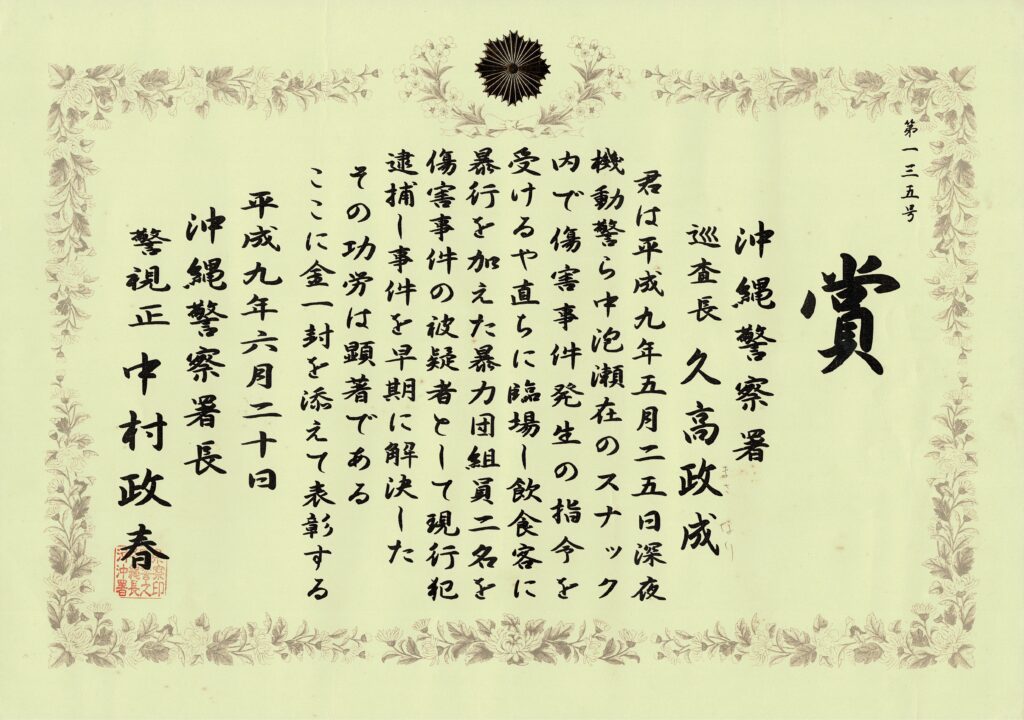 第一三五号
賞
沖縄警察署
巡査長 久高政成
まさ なり
君は平成九年五月二五日深夜
機動警ら中泡瀬在のスナック
内で傷害事件発生の指令を
受けるや直ちに臨場し飲食客に
暴行を加えた暴力団組員二名を
傷害事件の被疑者として現行犯
逮捕し事件を早期に解決した
その功労は顕著である
ここに金一封を添えて表彰する
平成九年六月二十日
沖縄警察署長
警視正 中村政春